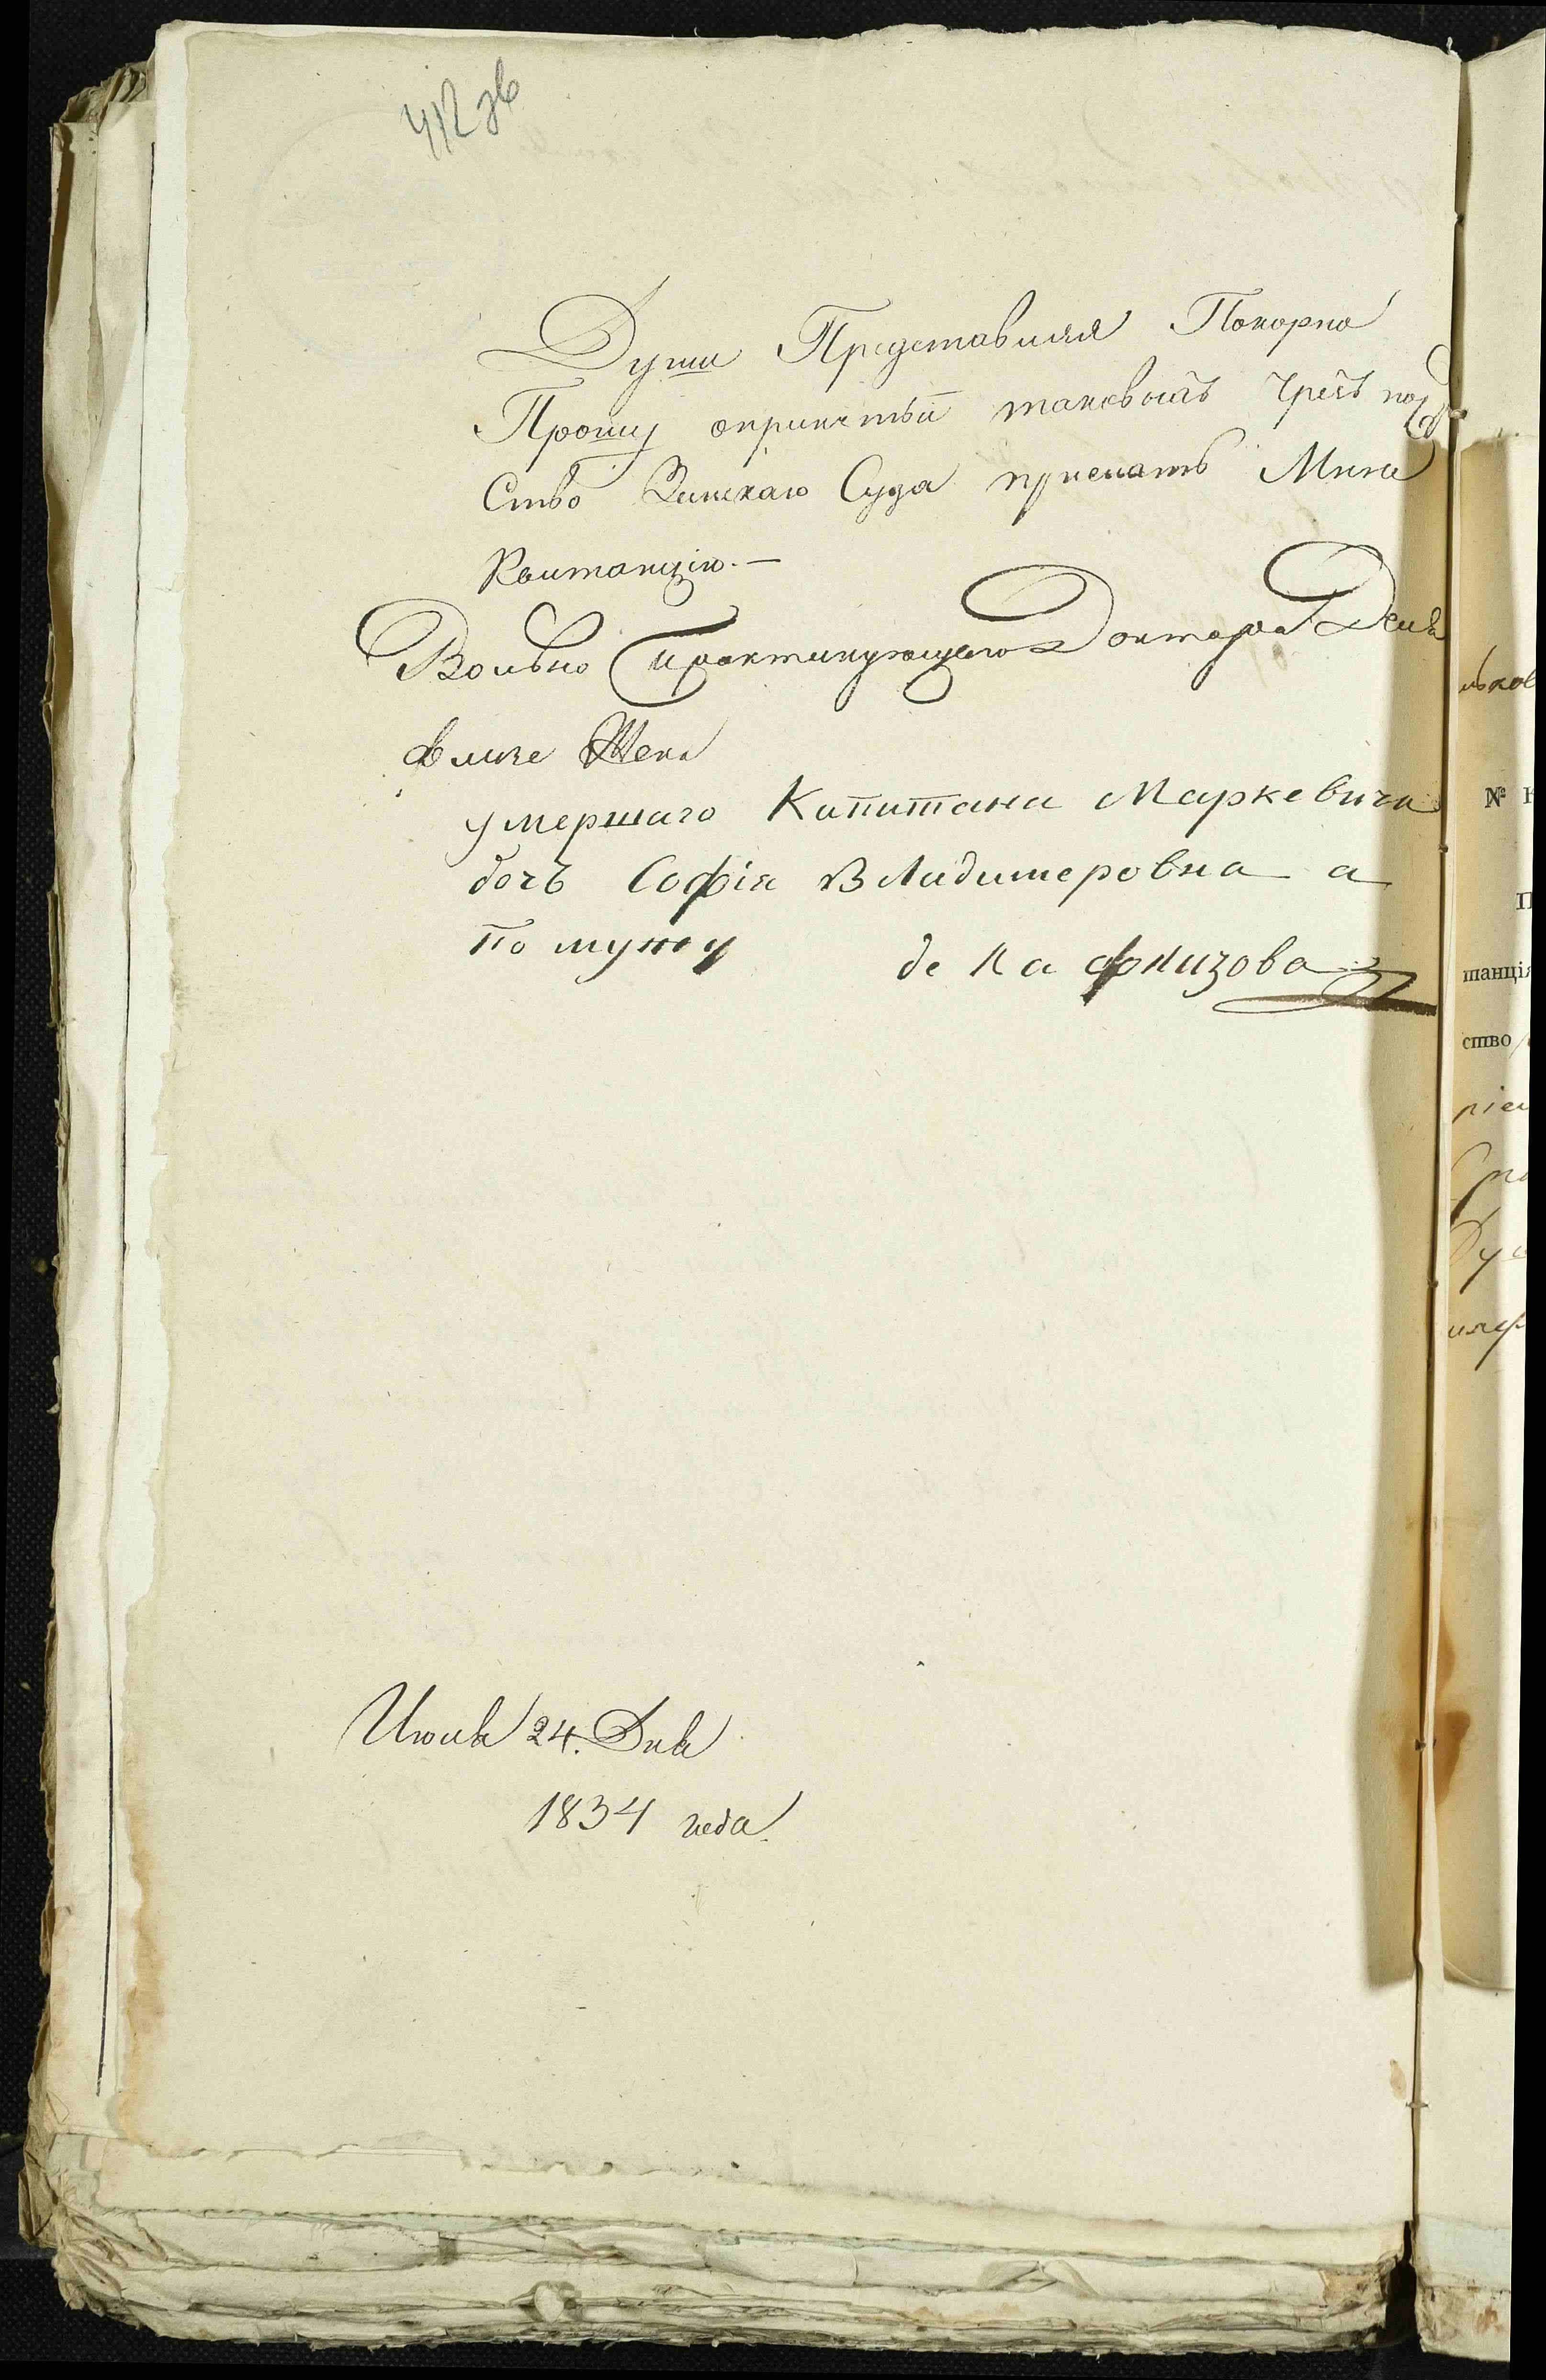 412 зв
Души Представляя Покорно
Прошу опринятыи таковыхъ Чрезъ по
Ство Земскаго Суда прислать Мнѣ
Квитанцію.—
Вольно практикующаго Доктора Дела
флизе Жена
умершаго Капитана Маркевича
дочъ Софія Владимеровна а
по мужу де ла флизова
Июля 24. Дня
1834 года.
№
шанція
ство